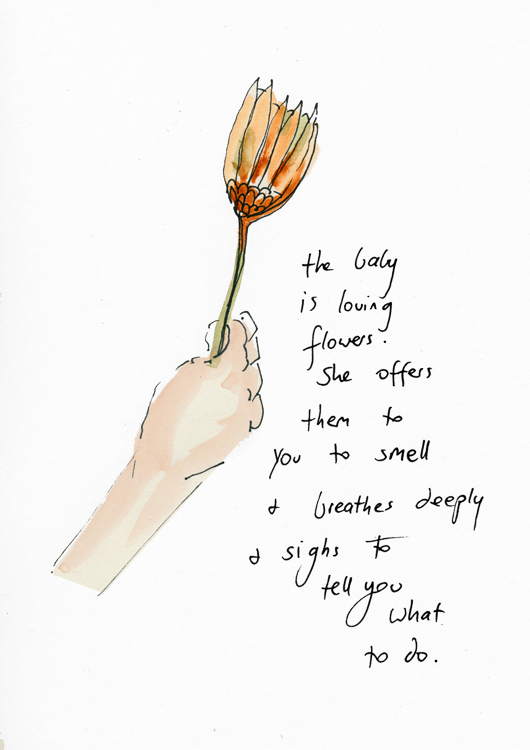 the baby
is loving
flowers.
She offers
them to
you to smell
& breathes deeply
& sighs to
tell you
what
to do.